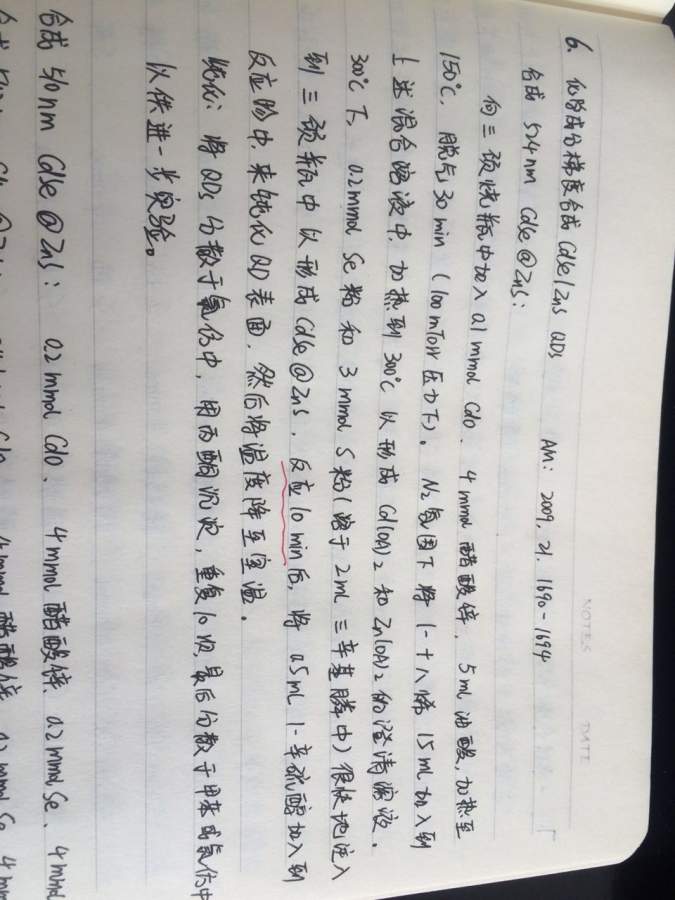 NOTES DATE
6. 化学成分梯度合成 CdSe/ZnS QDs AM: 2009, 21. 1690-1694
合成 524nm CdSe@ZnS:
向三颈烧瓶中加入 0.1 mmol CdO、4 mmol 醋酸锌、5 mL 油酸,加热至
150℃,脱气 30 min (100 mTorr 压力下)。N₂氛围下将 1-十八烯 15 mL 加入到
上述混合溶液中,加热到 300℃ 以形成 Cd(OA)₂ 和 Zn(OA)₂ 的澄清溶液。
300℃下,0.2 mmol Se 粉和 3 mmol S 粉(溶于 2mL 三辛基膦中)很快地注入
到三颈瓶中以形成 CdSe@ZnS,反应 10 min 后,将 0.5 mL 1-辛硫醇加入到
反应阶中,来钝化 QD 表面,然后将温度降至室温。
纯化:将 QDs 分散于氯仿中,用丙酮沉淀,重复 10 次,最后分散于甲苯或氯仿中
以供进一步实验。
合成 510nm CdSe@ZnS: 0.2 mmol CdO、4 mmol 醋酸锌、0.2 mmol Se、4 mmol
4 mmol 醋酸锌 0.2 mmol Se 4 mm